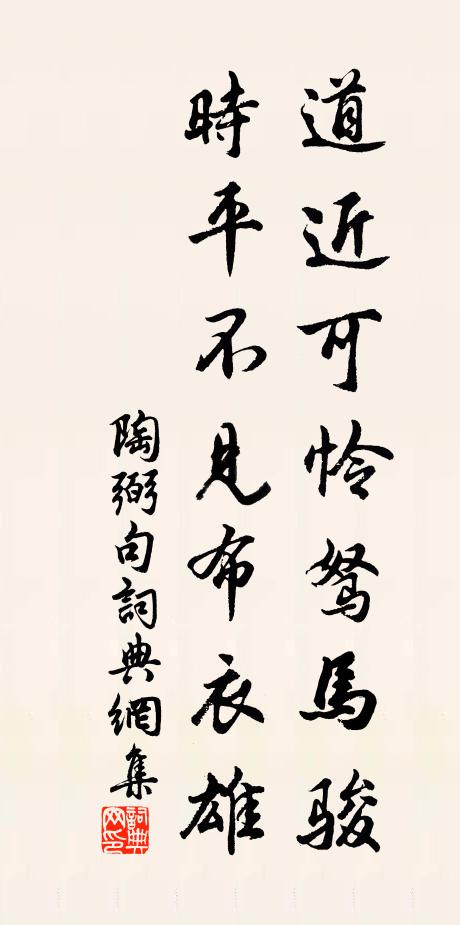 道近可怜驽馬骏
時平不見布衣雄
陶弼句詞典網集
詞典网印